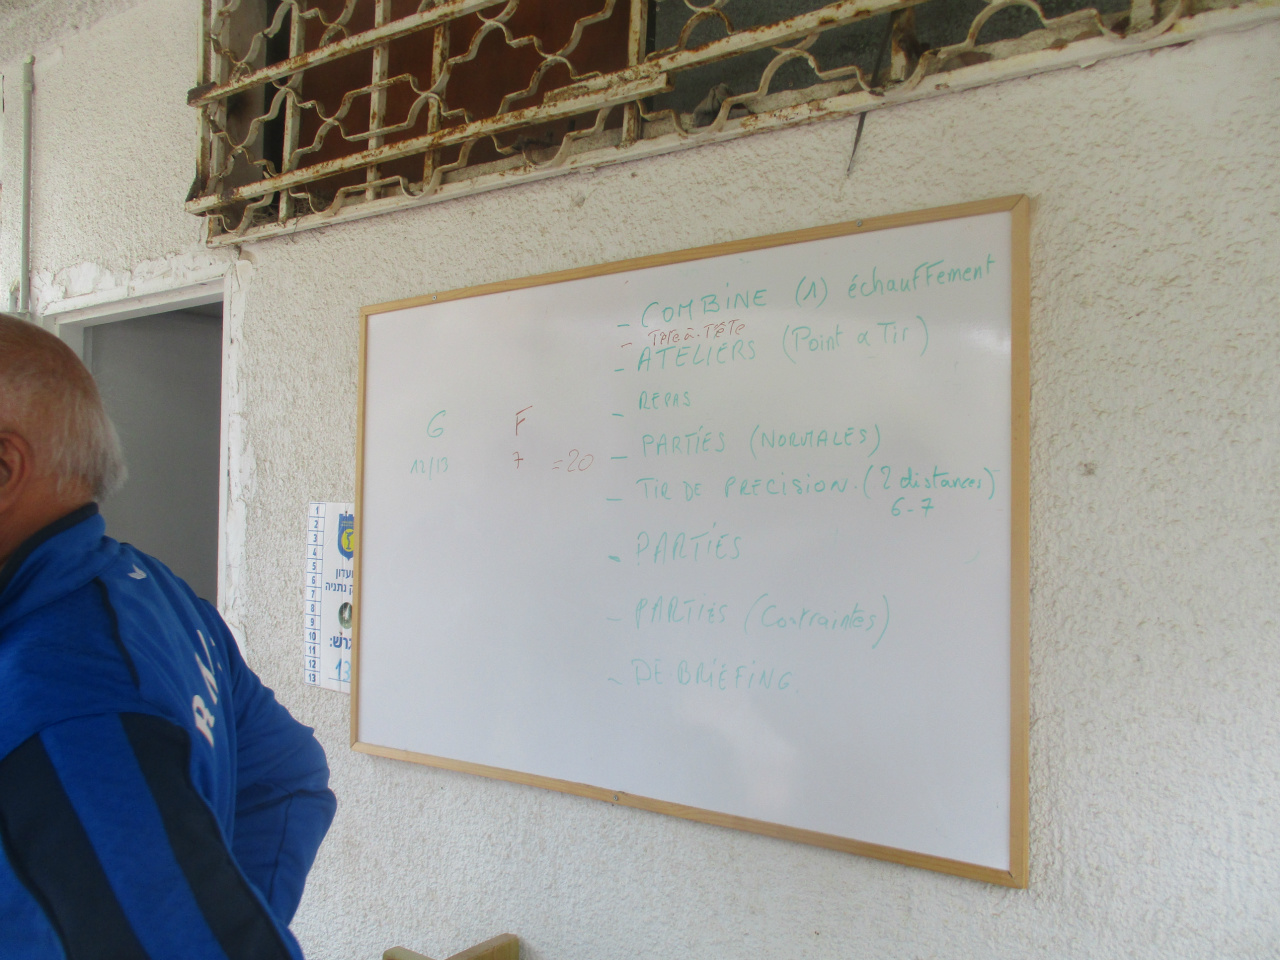 - COMBINE (1) échauffement
- Tête-à-Tête
- ATELIERS (Point & Tir)
- REPAS
- PARTIES (NORMALES)
- TIR DE PRECISION. (2 distances)
6-7
- PARTIES
- PARTIES (Contraintes)
- DE BRIEFING.
G F
12/13 7 =20
1
2
3
4
5
6
7
8
9
10
11
12
13
נתניה
13